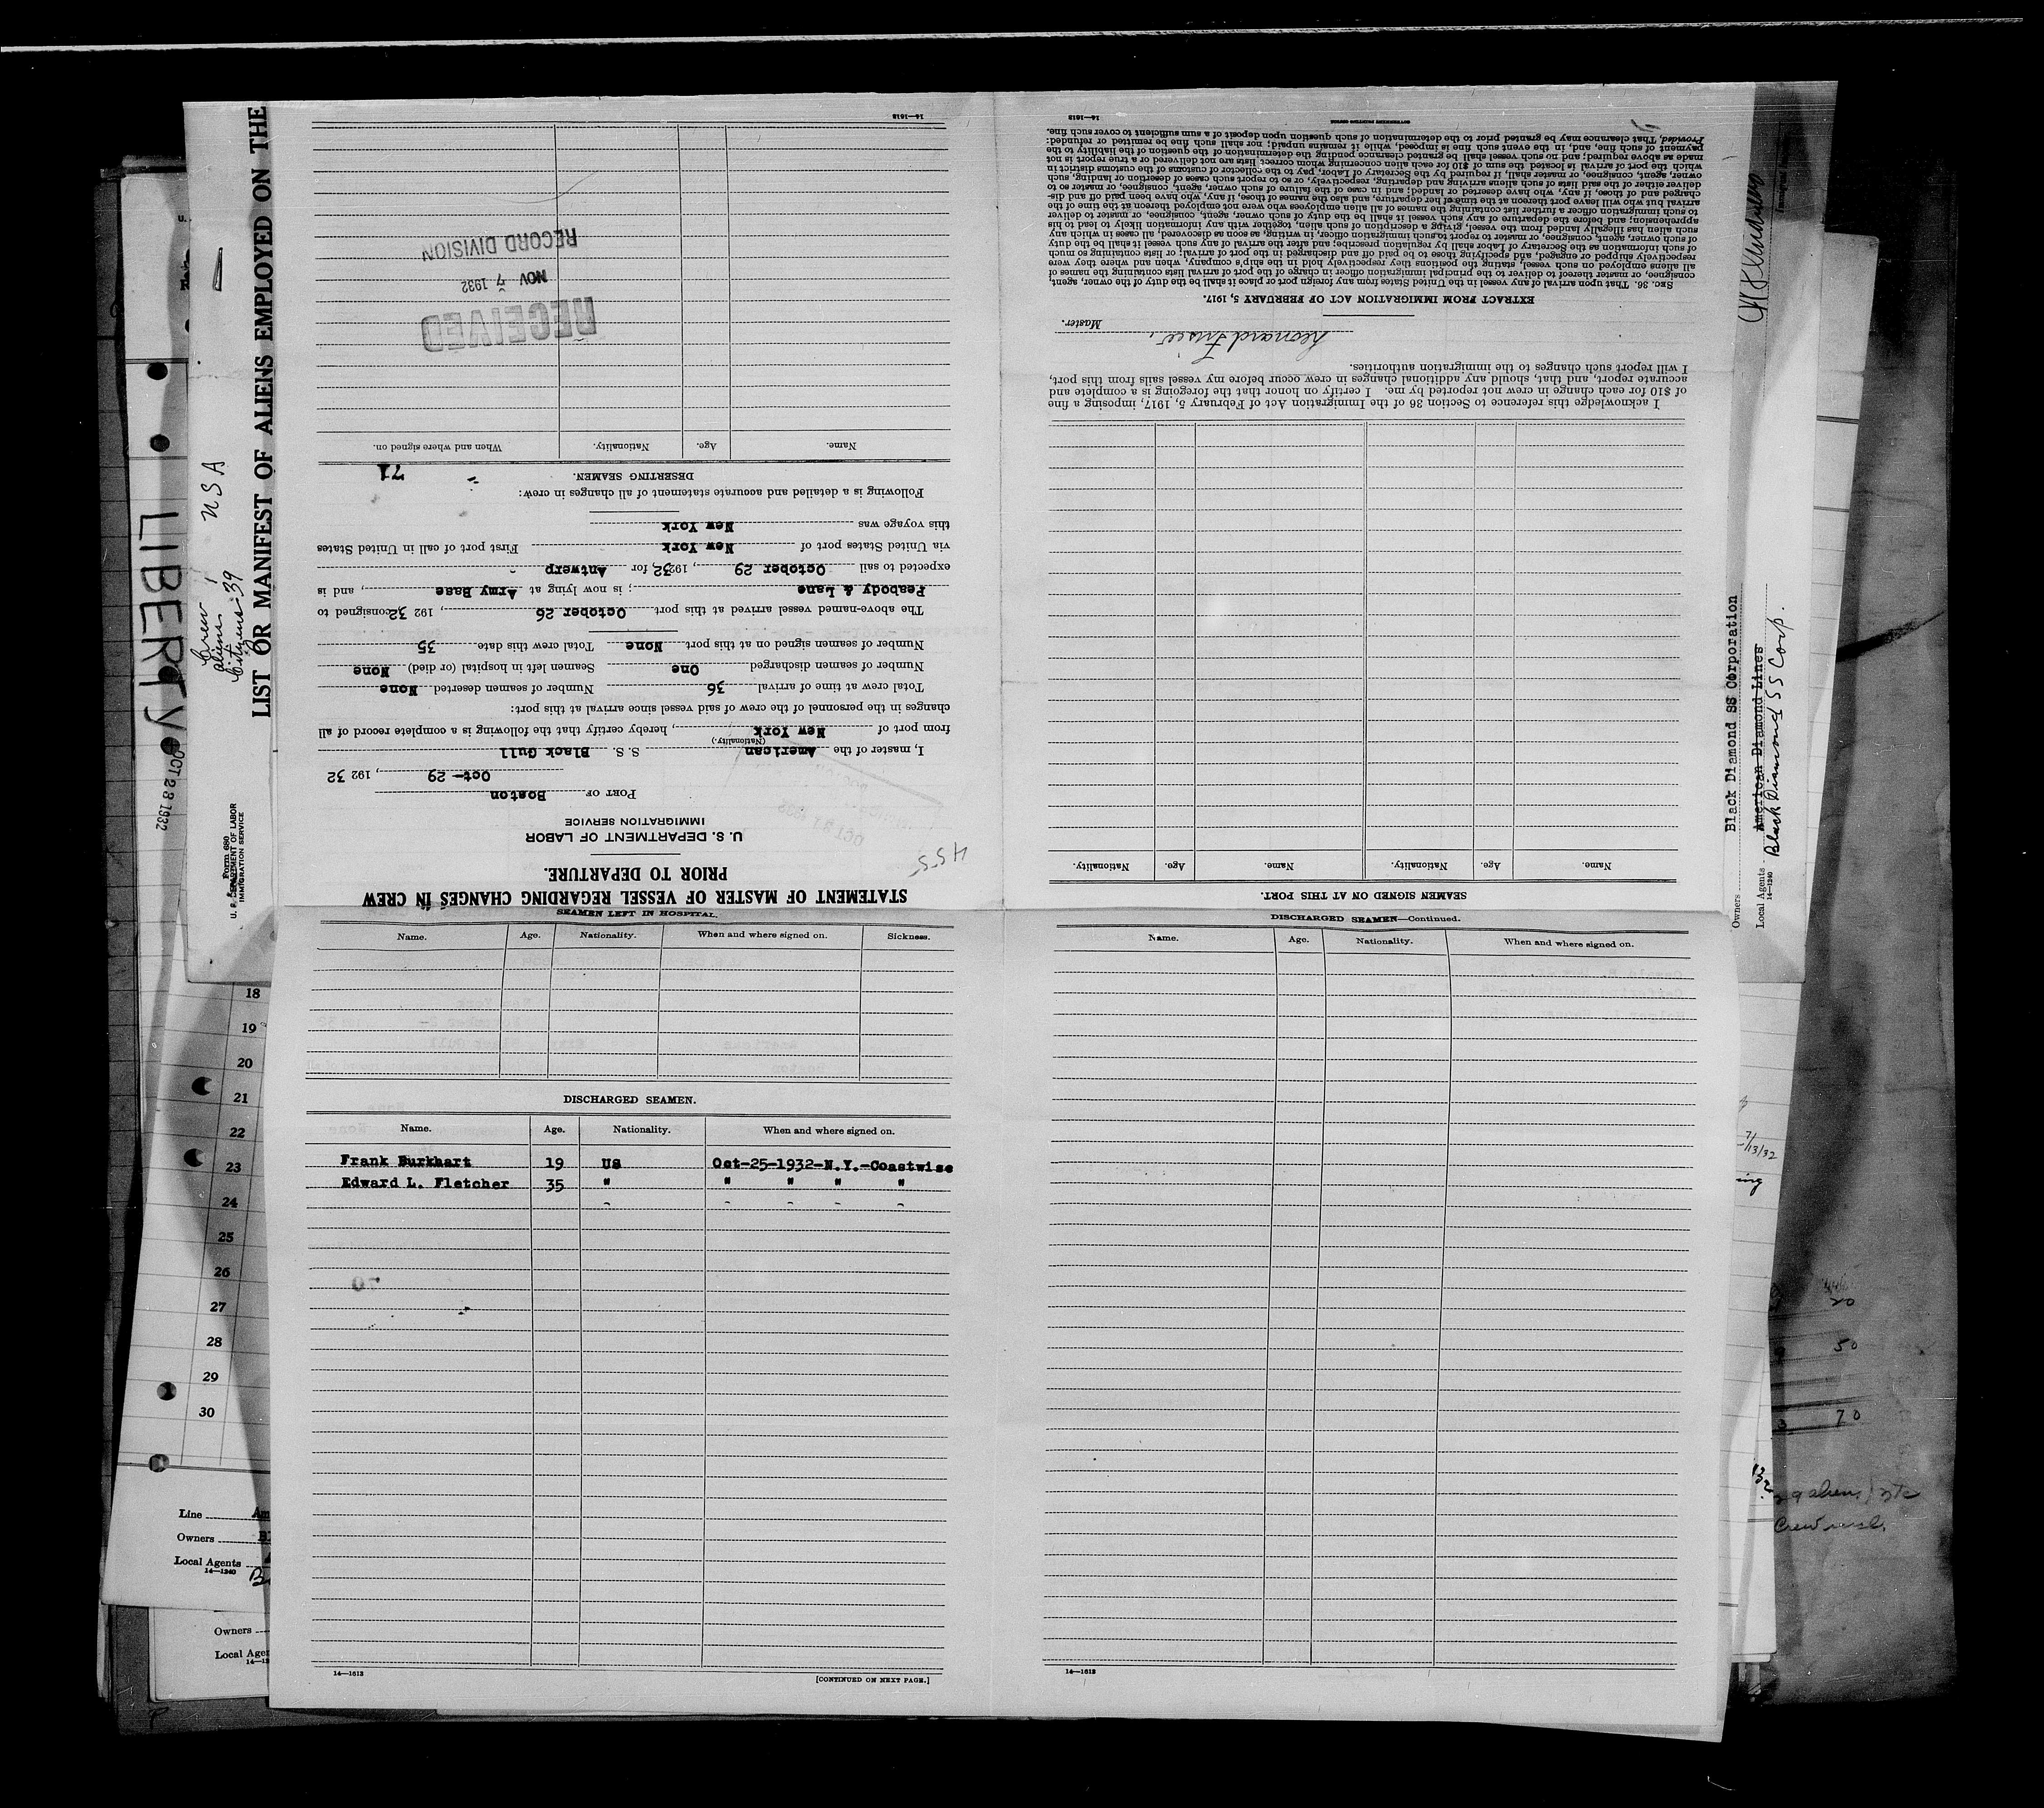 STATEMENT OF MASTER OF VESSEL REGARDING CHANGES IN CREW
PRIOR TO DEPARTURE.
U. S. DEPARTMENT OF LABOR
IMMIGRATION SERVICE
455
PORT OF Boston
Oct- 29, 192 32
I, master of the American S. S. Black Gull
(Nationality.)
from port of New York, hereby certify that the following is a complete record of all
changes in the personnel of the crew of said vessel since arrival at this port:
Total crew at time of arrival 36 Number of seamen deserted None
Number of seamen discharged One Seamen left in hospital (or died) None
Number of seamen signed on at this port None Total crew this date 35
The above-named vessel arrived at this port October 26, 192 32 consigned to
Peabody & Lane; is now lying at Army Base, and is
expected to sail October 29, 192 32, for Antwerp
via United States port of New York First port of call in United States
this voyage was New York
Following is a detailed and accurate statement of all changes in crew:
DESERTING SEAMEN.
71
Name. Age. Nationality. When and where signed on.
RECEIVED
NOV 7 1932
RECORD DIVISION
14—1613
SEAMEN LEFT IN HOSPITAL.
Name. Age. Nationality. When and where signed on. Sickness.
DISCHARGED SEAMEN.
Name. Age. Nationality. When and where signed on.
Frank Burkhart 19 US Oct-25-1932-N.Y.-Coastwise
Edward L. Fletcher 35 " " " " "
70
14—1613
[CONTINUED ON NEXT PAGE.]
DISCHARGED SEAMEN—Continued.
Name. Age. Nationality. When and where signed on.
14—1613
SEAMEN SIGNED ON AT THIS PORT.
Name. Age. Nationality. Name. Age. Nationality.
I acknowledge this reference to Section 36 of the Immigration Act of February 5, 1917, imposing a fine
of $10 for each change in crew not reported by me. I certify on honor that the foregoing is a complete and
accurate report, and that, should any additional changes in crew occur before my vessel sails from this port,
I will report such changes to the immigration authorities.
Leonard
Master.
EXTRACT FROM IMMIGRATION ACT OF FEBRUARY 5, 1917.
SEC. 36. That upon arrival of any vessel in the United States from any foreign port or place it shall be the duty of the owner, agent,
consignee, or master thereof to deliver to the principal immigration officer in charge of the port of arrival lists containing the names of
all aliens employed on such vessel, stating the positions they respectively hold in the ship's company, when and where they were
respectively shipped or engaged, and specifying those to be paid off and discharged in the port of arrival; or lists containing so much
of such information as the Secretary of Labor shall by regulation prescribe; and after the arrival of any such vessel it shall be the duty
of such owner, agent, consignee, or master to report to such immigration officer, in writing, as soon as discovered, all cases in which any
such alien has illegally landed from the vessel, giving a description of such alien, together with any information likely to lead to his
apprehension; and before the departure of any such vessel it shall be the duty of such owner, agent, consignee, or master to deliver
to such immigration officer a further list containing the names of all alien employees who were not employed thereon at the time of the
arrival but who will leave port thereon at the time of her departure, and also the names of those, if any, who have been paid off and dis-
charged and of those, if any, who have deserted or landed; and in case of the failure of such owner, agent, consignee, or master so to
deliver either of the said lists of such aliens arriving and departing, respectively, or so to report such cases of desertion or landing, such
owner, agent, consignee, or master shall, if required by the Secretary of Labor, pay to the collector of customs of the customs district in
which the port of arrival is located the sum of $10 for each alien concerning whom correct lists are not delivered or a true report is not
made as above required; and no such vessel shall be granted clearance pending the determination of the question of the liability to the
payment of such fine, and, in the event such fine is imposed, while it remains unpaid; nor shall such fine be remitted or refunded:
Provided, That clearance may be granted prior to the determination of such question upon deposit of a sum sufficient to cover such fine.
14—1613
GOVERNMENT PRINTING OFFICE
LIST OR MANIFEST OF ALIENS EMPLOYED ON THE
Form 680
U. S. DEPARTMENT OF LABOR
IMMIGRATION SERVICE
Crew
aliens 1
Citizens 39
USA
LIBERTY
OCT 28 1932
Owners Black Diamond SS Corporation
American Diamond Lines
Local Agents Black Diamond SS Corp.
14—1240
18
19
20
21
22
23
24
25
26
27
28
29
30
Line Am
Owners
Local Agents
14—1240
Owners
Local Age
7/13/32
20
50
70